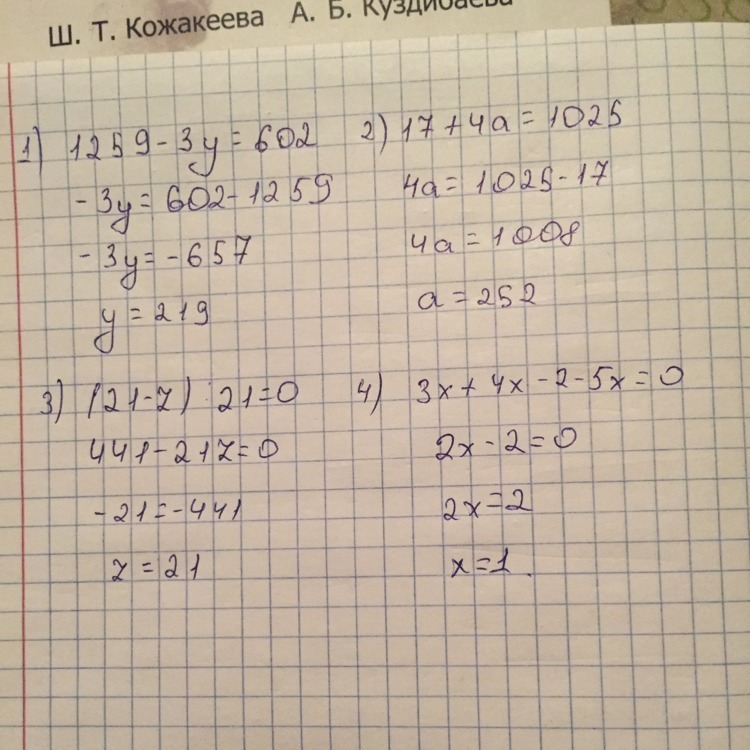 Ш. Т. Кожакеева А. Б. Куздибаева
1) 1259 - 3y = 602
- 3y = 602 - 1259
- 3y = - 657
y = 219
2) 17 + 4a = 1025
4a = 1025 - 17
4a = 1008
a = 252
3) (21 - z) : 21 = 0
441 - 21z = 0
- 21 = - 441
z = 21
4) 3x + 4x - 2 - 5x = 0
2x - 2 = 0
2x = 2
x = 1.